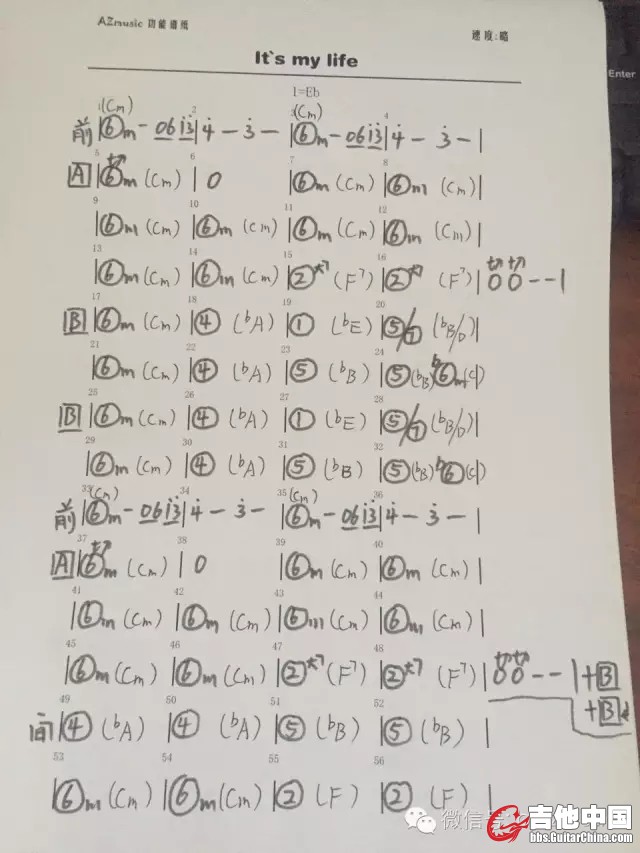 AZmusic 功能谱纸
速度:略
Enter
It's my life
1=Eb
1 (Cm) 2 3 (Cm) 4
前 |⑥m - 06 i3̇ | 4̇ - 3̇ - |⑥m - 06 i3̇ | 4̇ - 3̇ - |
5 6 7 8
A |⑥m (Cm) | 0 |⑥m (Cm) |⑥m (Cm) |
9 10 11 12
|⑥m (Cm) |⑥m (Cm) |⑥m (Cm) |⑥m (Cm) |
13 14 15 16
|⑥m (Cm) |⑥m (Cm) |②大7 (F7) |②大7 (F7) | 0 0 - - |
17 18 19 20
B |⑥m (Cm) |④ (bA) |① (bE) |⑤/⑦ (bB/D) |
21 22 23 24
|⑥m (Cm) |④ (bA) |⑤ (bB) |⑤(bB) b⑥m(c) |
25 26 27 28
B |⑥m (Cm) |④ (bA) |① (bE) |⑤/⑦ (bB/D) |
29 30 31 32
|⑥m (Cm) |④ (bA) |⑤ (bB) |⑤(bB) b⑥(c) |
33 (Cm) 34 35 (Cm) 36
前 |⑥m - 06 i3̇ | 4̇ - 3̇ - |⑥m - 06 i3̇ | 4̇ - 3̇ - |
37 38 39 40
A |⑥m (Cm) | 0 |⑥m (Cm) |⑥m (Cm) |
41 42 43 44
|⑥m (Cm) |⑥m (Cm) |⑥m (Cm) |⑥m (Cm) |
45 46 47 48
|⑥m (Cm) |⑥m (Cm) |②大7 (F7) |②大7 (F7) | 0 0 - - | +B
+B
49 50 51 52
间 |④ (bA) |④ (bA) |⑤ (bB) |⑤ (bB) |
53 54 55 56
|⑥m (Cm) |⑥m (Cm) |② (F) |② (F) |
微信
吉他中国
bbs.GuitarChina.com